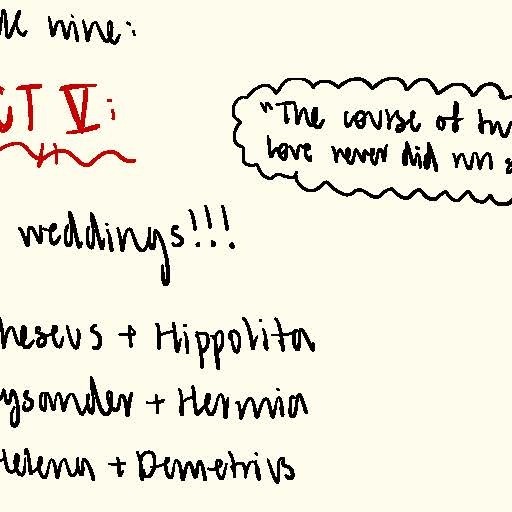 nine:
CT V:
"The course of tru
love never did run s
weddings!!!
heseus + Hippolita
ysander + Hermia
Helena + Demetrius